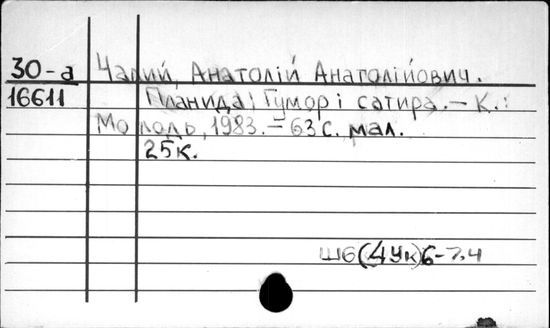 30-а Чалий, Анатолій Анатолійович.
16611 Планида: Гумор і сатира. – К.:
Молодь, 1983. – 63 с. мал.
25к.
Ш6(4Ук)6-7.4